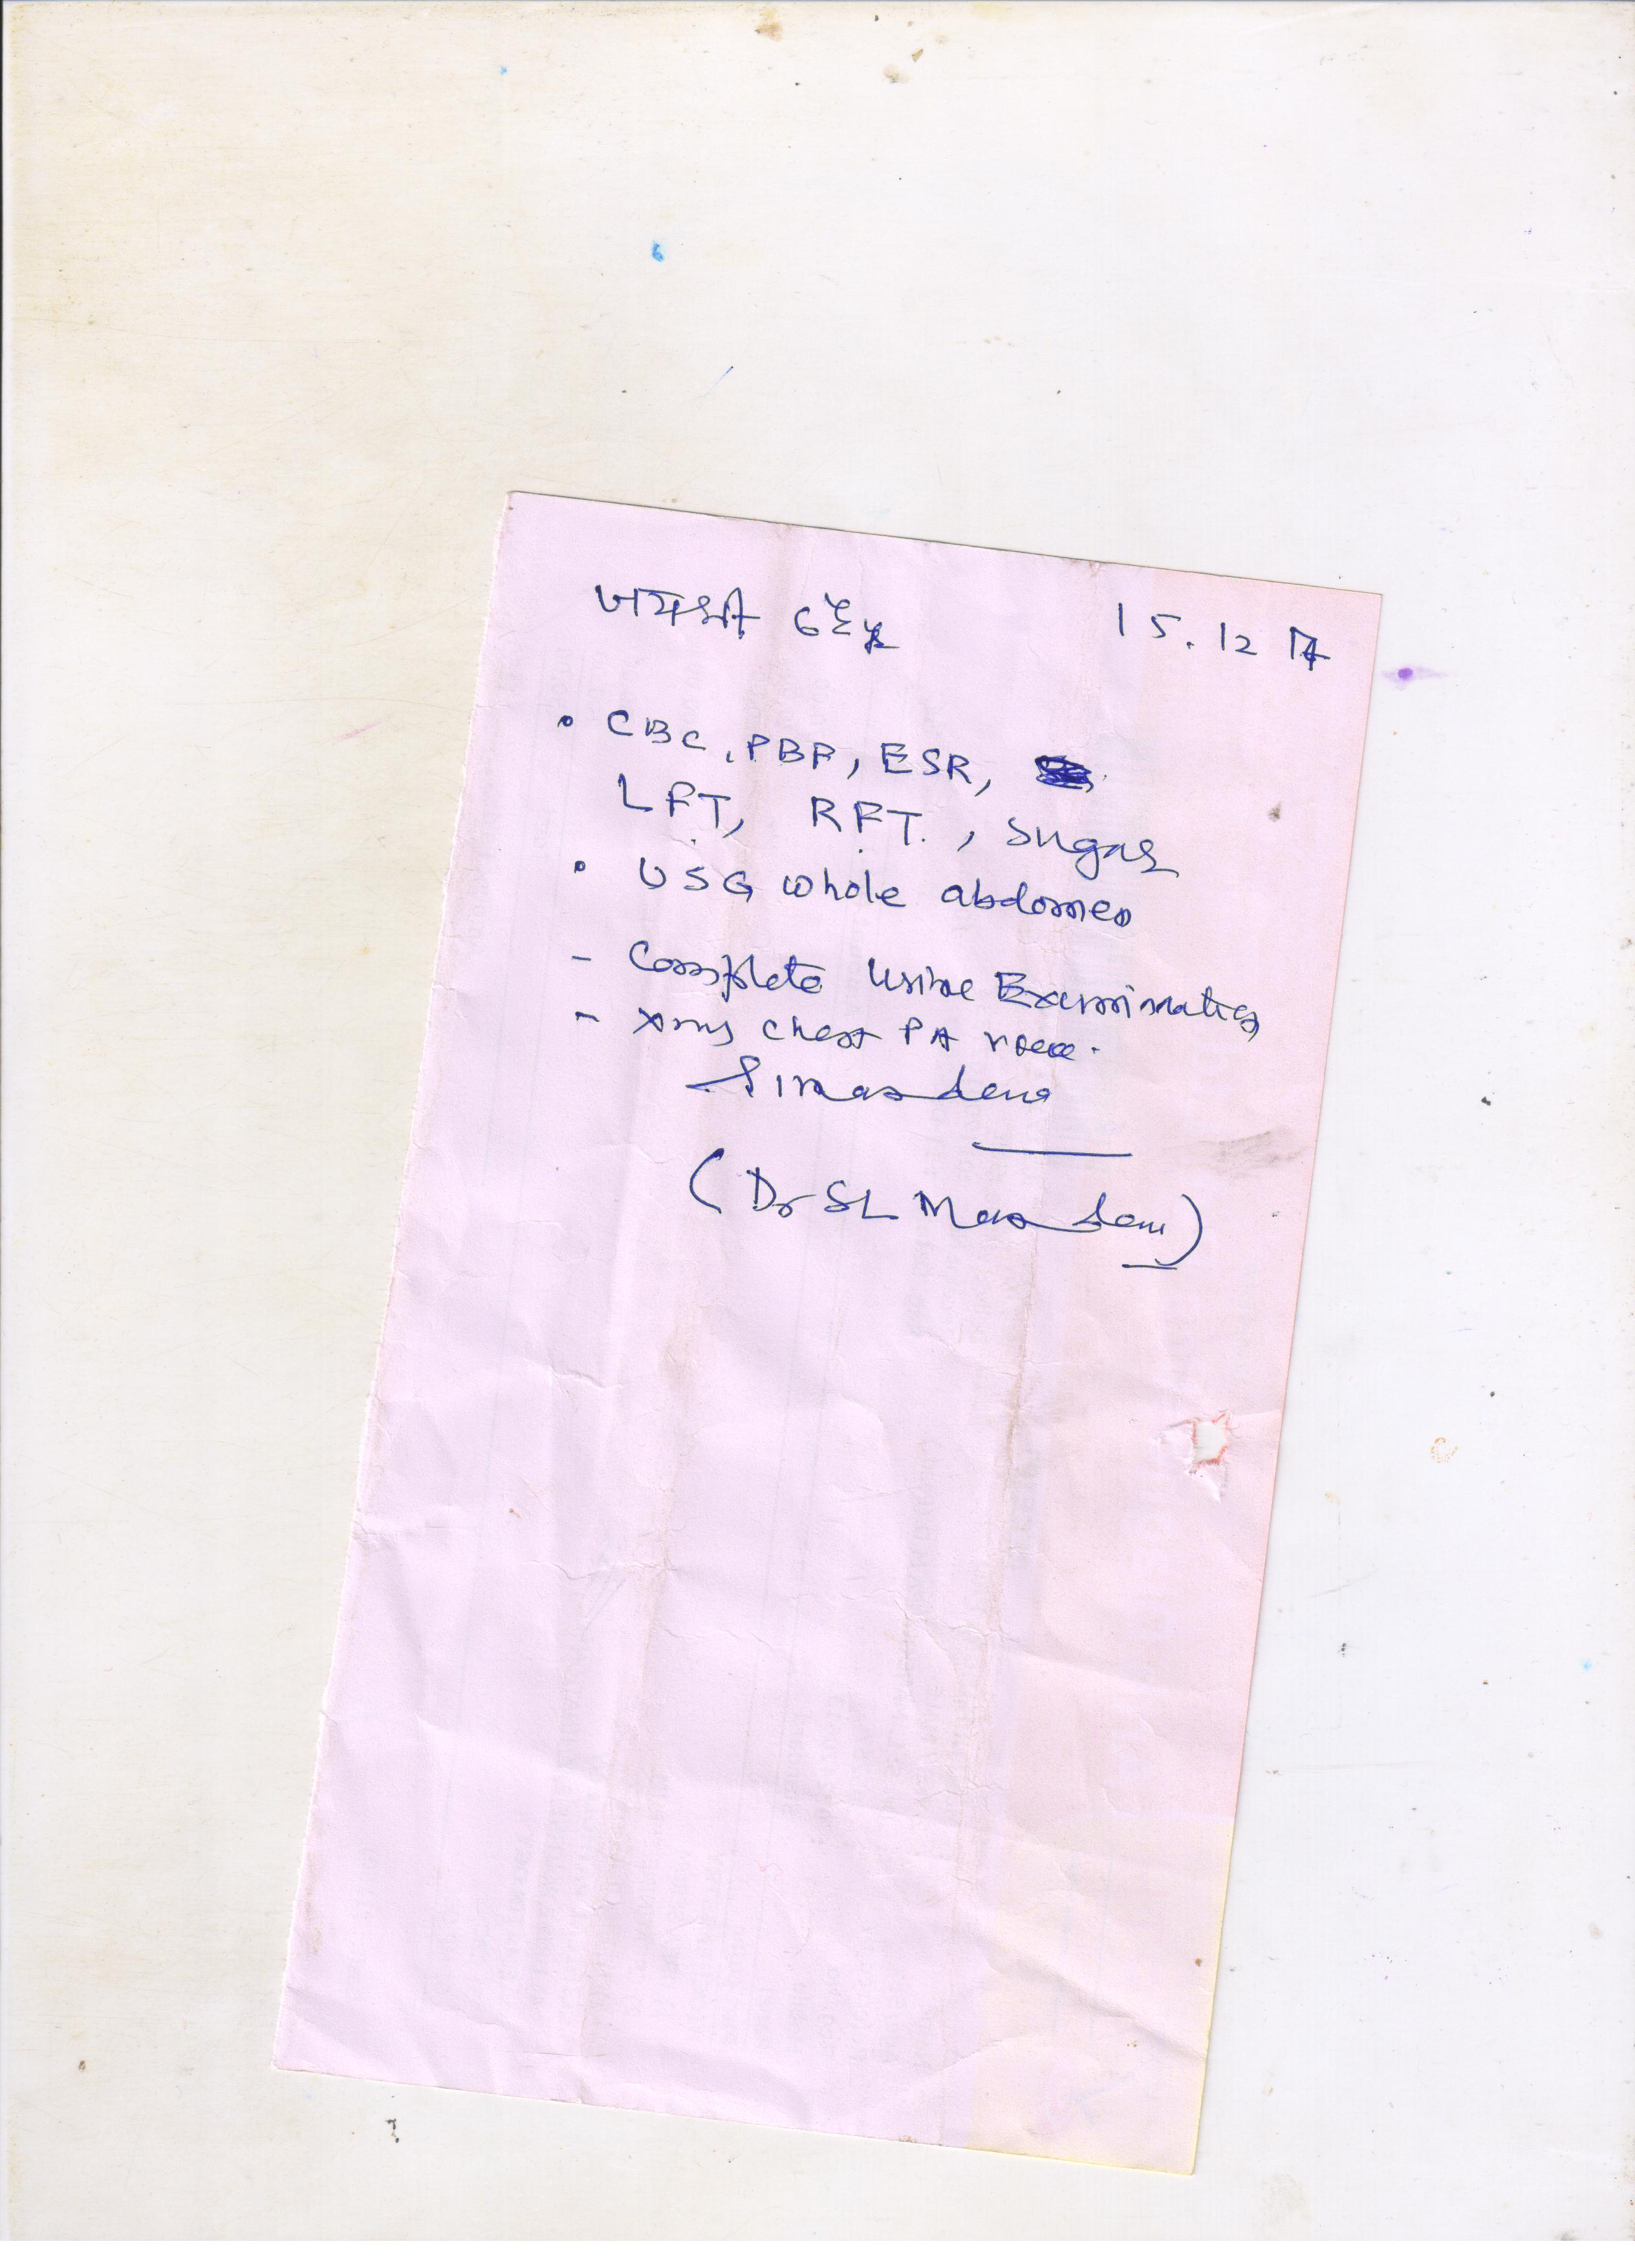 15.12 17
• CBC, PBF, ESR,
LFT, RFT., Sugar
• USG whole abdomen
- Complete Urine Examination
- Xray chest PA view.
(Dr SL Mar